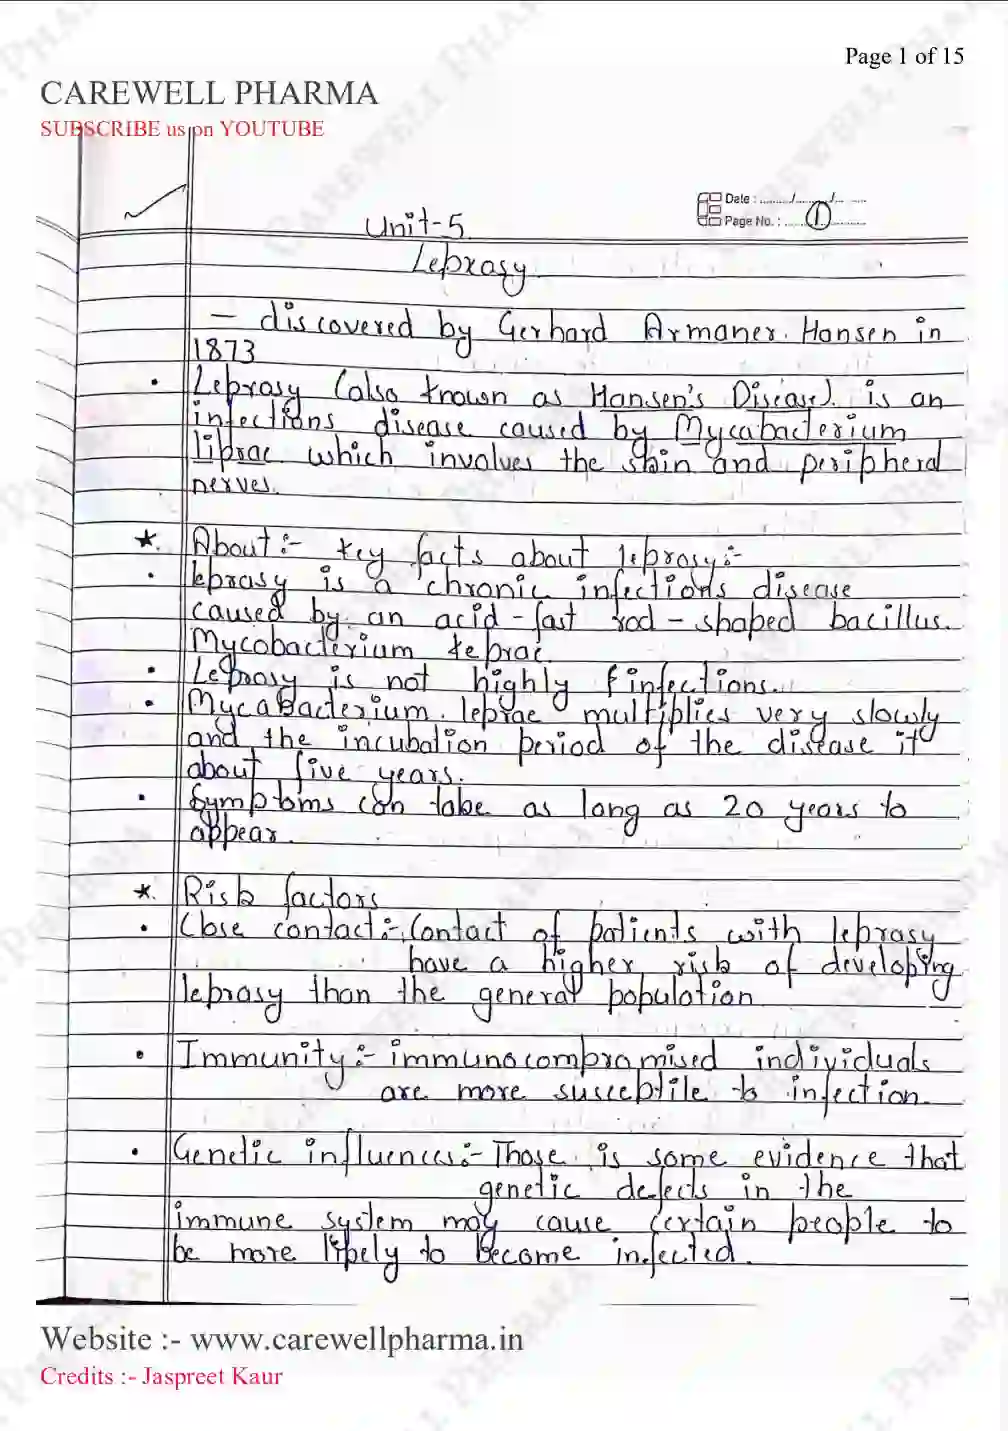 Page 1 of 15
CAREWELL PHARMA
SUBSCRIBE us on YOUTUBE
Date : ......../......../........
Page No. : ...... 1 ........
Unit-5
Leprosy
- discovered by Gerhard Armaner Hansen in
1873
• Leprosy (also known as Hansen's Disease). is an
infections disease caused by Mycabacterium
liprae which involves the skin and peripheral
nerves.
* About :- key facts about leprosy :-
• leprosy is a chronic infections disease
caused by an acid-fast rod-shaped bacillus.
Mycobacterium leprae.
• Leprosy is not highly infections.
• Mycabacterium leprae multiplies very slowly
and the incubation period of the disease it
about five years.
• Symptoms can take as long as 20 years to
appear.
* Risk factors
• Close contact :- Contact of patients with leprosy
have a higher risk of developing
leprosy than the general population
• Immunity :- immunocompromised individuals
are more susceptile to infection.
• Genetic influences :- Those is some evidence that
genetic defects in the
immune system may cause certain people to
be more likely to become infected.
Website :- www.carewellpharma.in
Credits :- Jaspreet Kaur